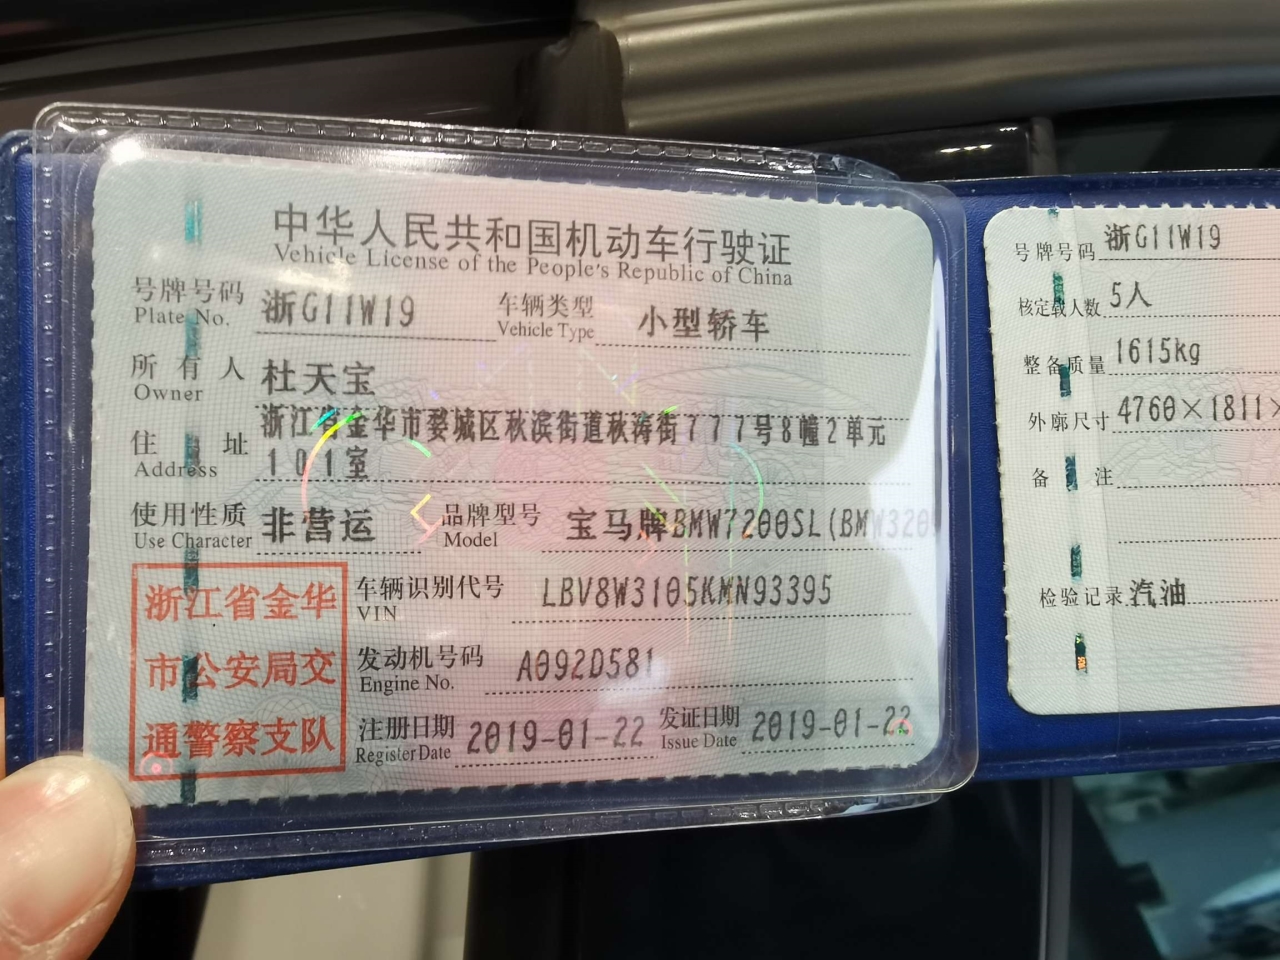 中华人民共和国机动车行驶证
Vehicle License of the People's Republic of China
号牌号码 浙G11W19 车辆类型 小型轿车
Plate No. Vehicle Type
所有人 杜天宝
Owner
住址 浙江省金华市婺城区秋滨街道秋涛街777号8幢2单元
Address 101室
使用性质 非营运 品牌型号 宝马牌BMW7200SL(BMW320
Use Character Model
浙江省金华
市公安局交
通警察支队
车辆识别代号 LBV8W3105KMN93395
VIN
发动机号码 A092D581
Engine No.
注册日期 2019-01-22 发证日期 2019-01-22
Register Date Issue Date
号牌号码 浙G11W19
核定载人数 5人
整备质量 1615kg
外廓尺寸 4760×1811×
备注
检验记录 汽油